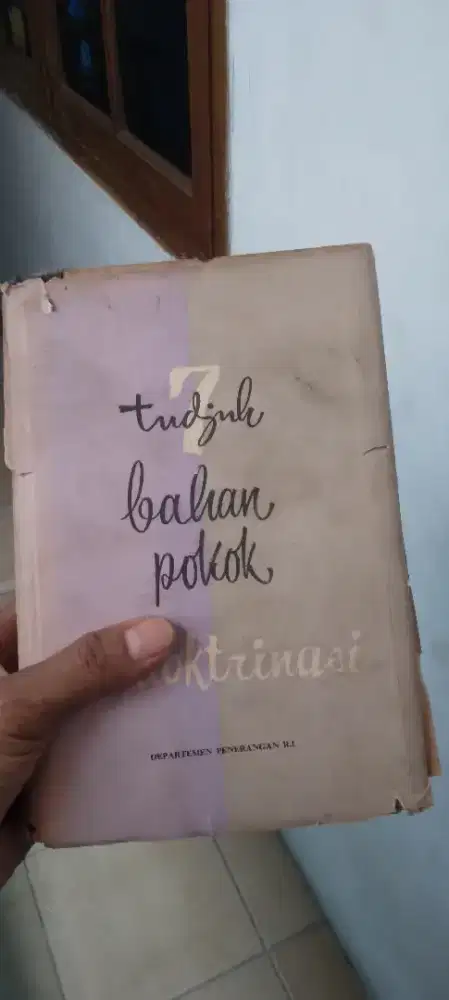 7
tudjuh
bahan
pokok
oktrinasi
DEPARTEMEN PENERANGAN R.I.